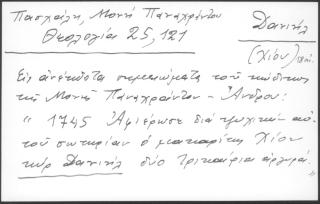 Πασχάλη, Μονή Παναχράντου
Θεολογία 25, 121
Δανιήλ
(Χίου)
Εις ανέκδοτα σημειώματα του κώδικος
της Μονής Παναχράντου - Άνδρου:
" 1745 Αφιέρωσε διά ψυχικήν αὐ-
τοῦ σωτηρίαν ὁ μακαρίτης Χίου
κύρ Δανιήλ δύο τρικαίρια ἀργυρᾶ".